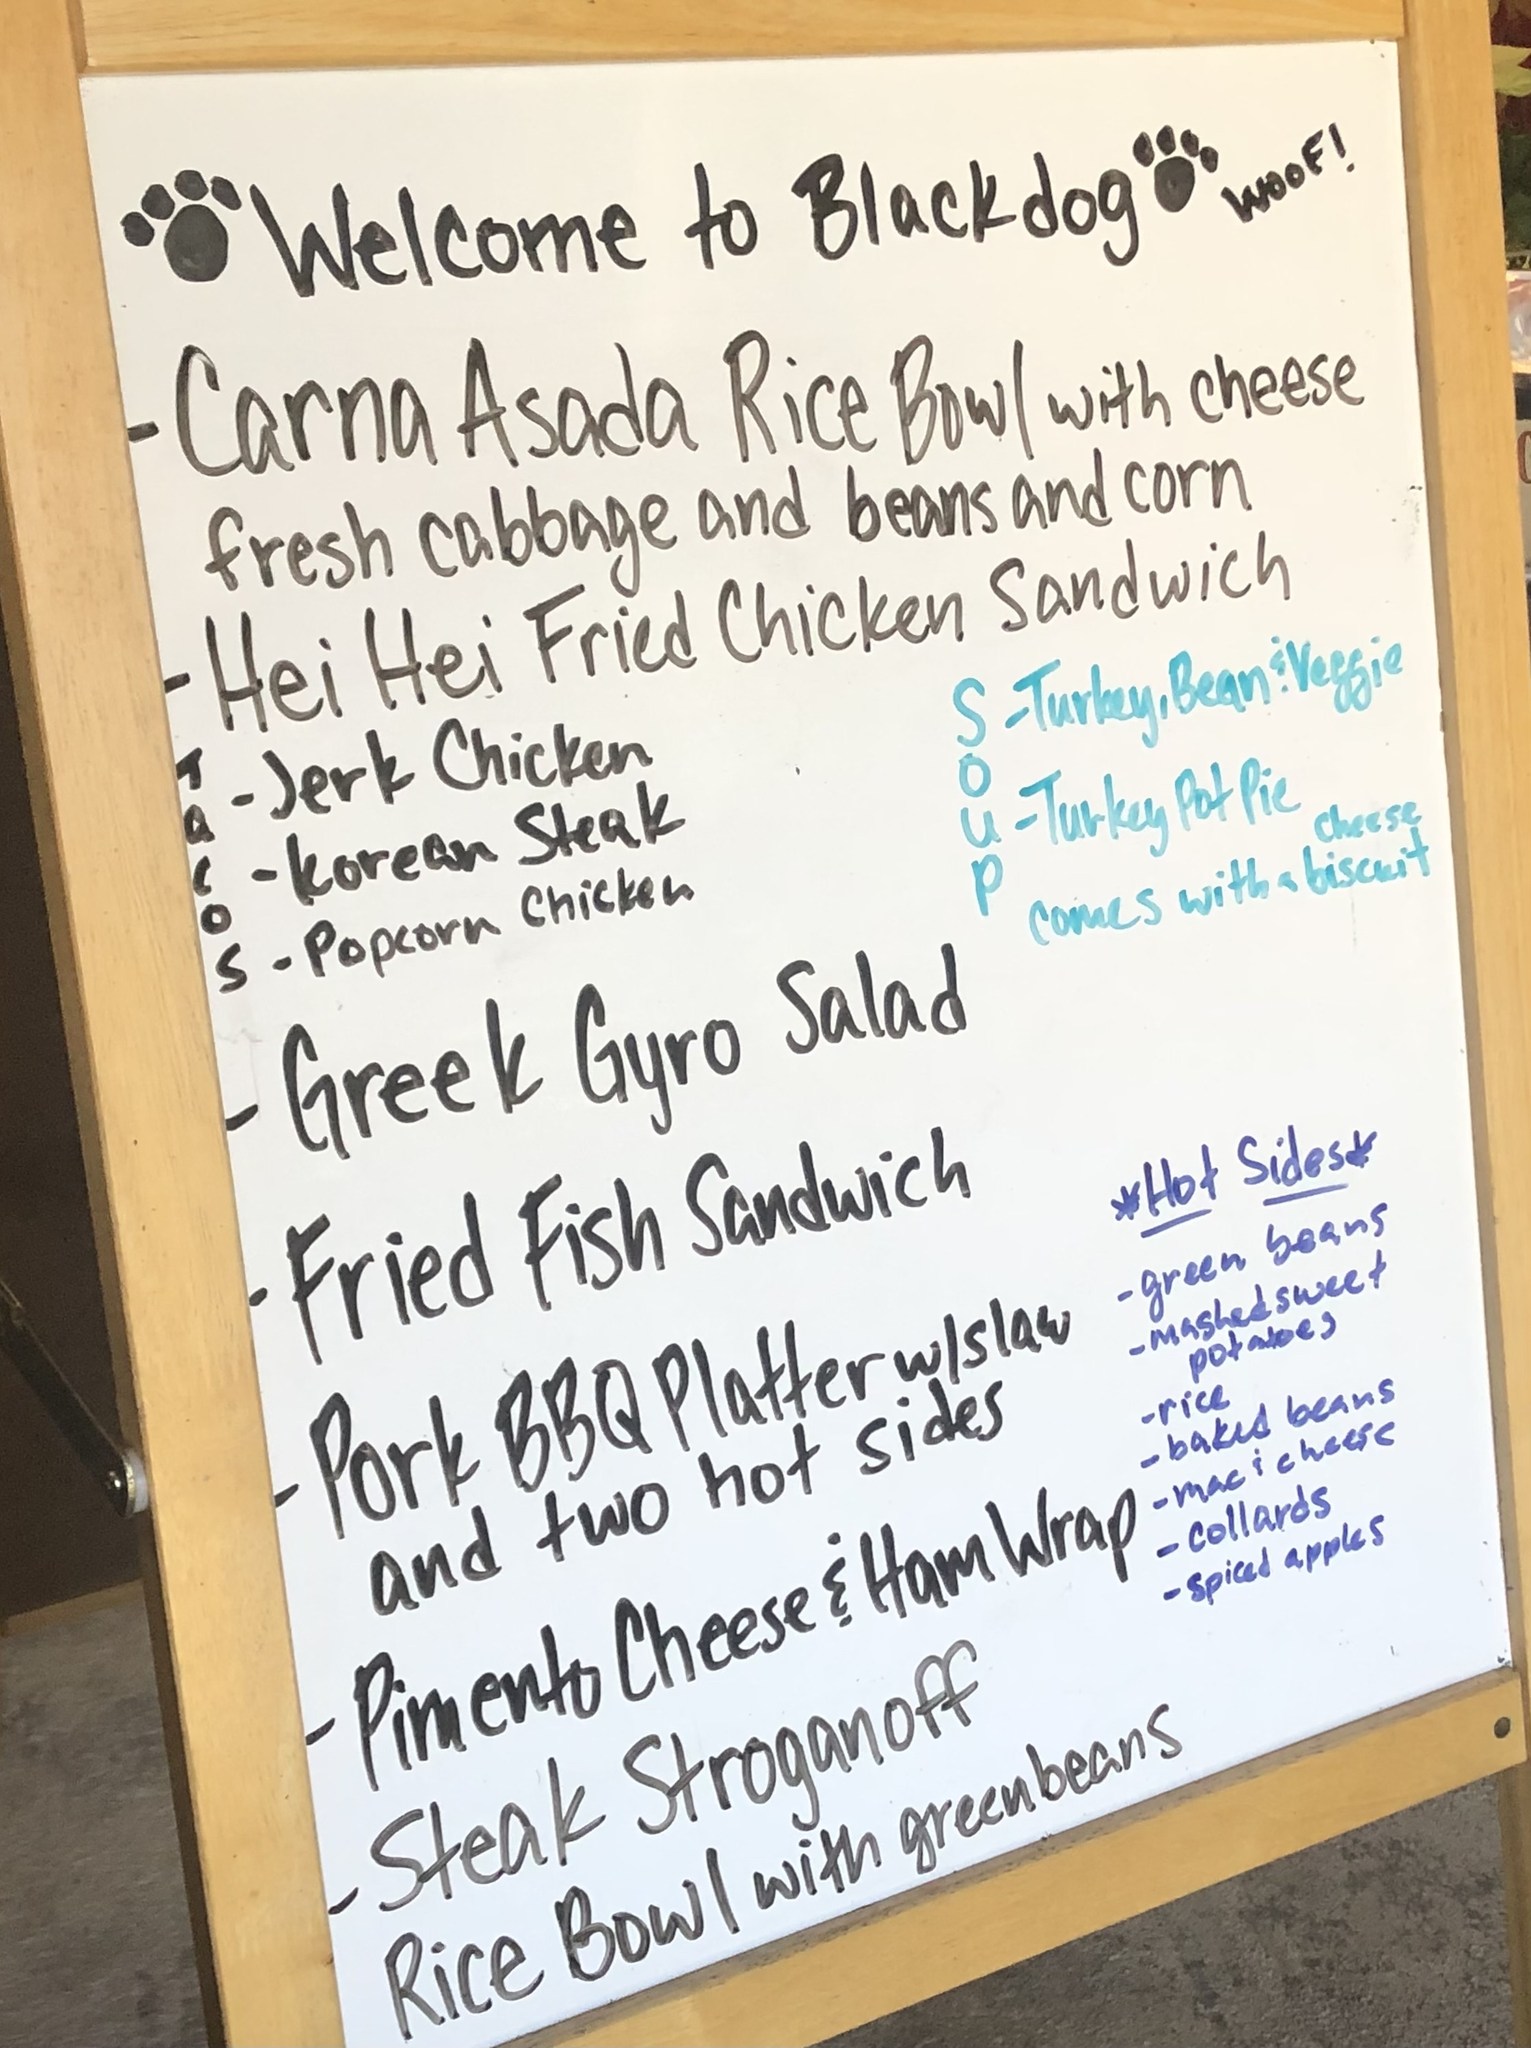 Welcome to Blackdog WOOF!
- Carna Asada Rice Bowl with cheese
fresh cabbage and beans and corn
- Hei Hei Fried Chicken Sandwich
Tacos
- Jerk Chicken
- Korean Steak
- Popcorn Chicken
SOUP
- Turkey, Bean & Veggie
- Turkey Pot Pie
cheese
comes with a biscuit
- Greek Gyro Salad
- Fried Fish Sandwich
- Pork BBQ Platter w/slaw
and two hot sides
- Pimento Cheese & Ham Wrap
- Steak Stroganoff
Rice Bowl with green beans
*Hot Sides*
- green beans
- mashed sweet
potatoes
- rice
- baked beans
- mac & cheese
- collards
- spiced apples